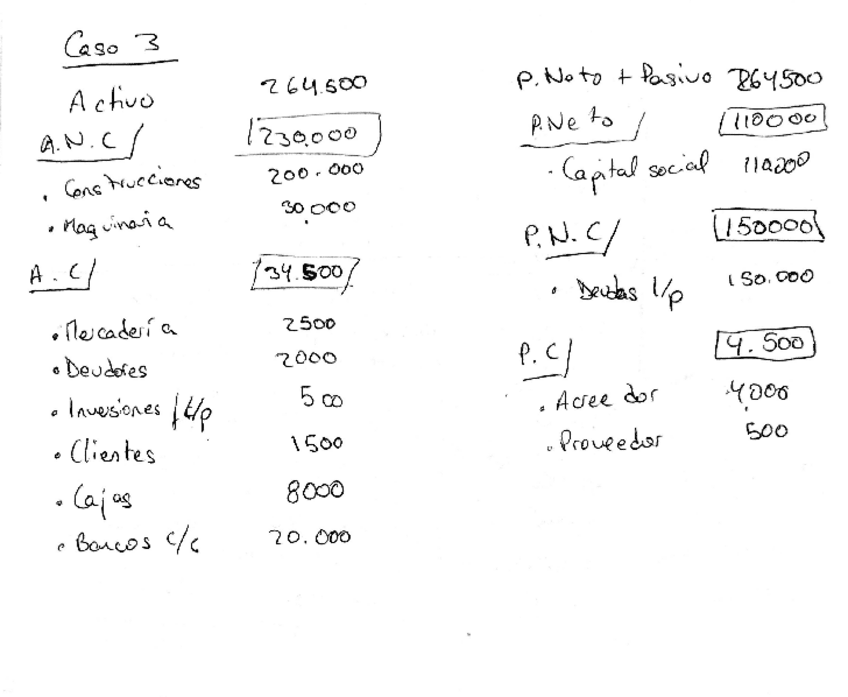 Caso 3
Activo 264.500
A.N.C/ 230.000
. Construcciones 200.000
. Maquinaria 30.000
A.C/ 34.500
. Mercadería 2500
. Deudores 2000
. Inversiones 500
. Clientes 1500
. Cajas 8000
. Bancos c/c 20.000
P.Neto + Pasivo 264500
P.Neto/ 110000
. Capital social 110.000
P.N.C/ 150000
. Deudas l/p 150.000
P.C/ 4.500
. Acreedor 4.000
. Proveedor 500